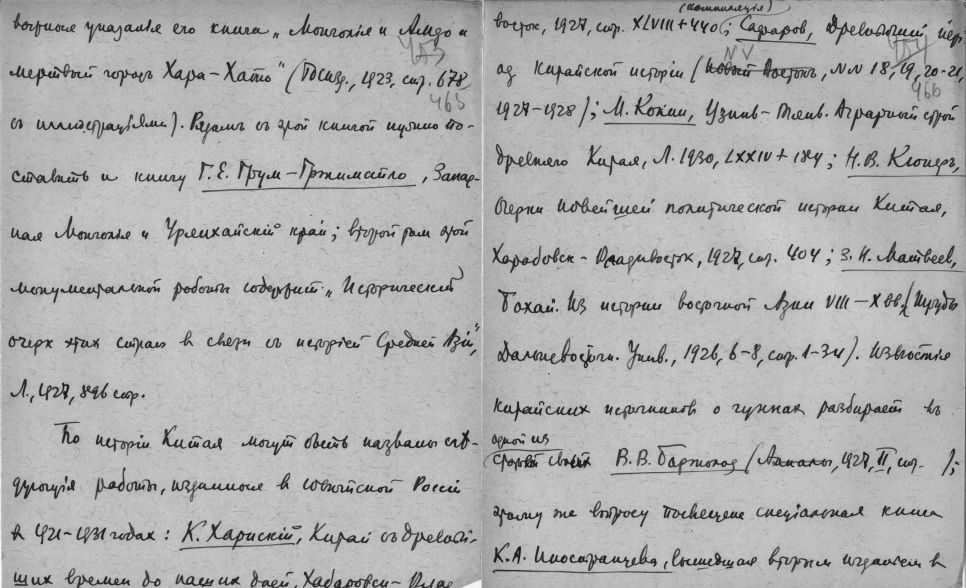 вочныя указанія его книга „Монголія и Амдо и
мертвый городъ Хара-Хото" (Госизд., 1923, стр. 678
453
465
съ иллюстраціями). Рядомъ съ этой книгой нужно по-
ставить и книгу Г. Е. Грум-Гржимайло, Запад-
ная Монголія и Урянхайскій край; второй том этой
монументальной работы содержит „Исторический
очерк этих стран в связи съ исторіей Средней Азіи",
Л., 1927, 896 стр.
По исторіи Китая могут быть названы слѣ-
дующія работы, изданныя в совѣтской Россіи
в 1921-1931 годах: К. Харнскій, Китай съ древнѣй-
ших времен до наших дней, Хабаровск-Влад
(компиляція)
восток, 1927, стр. XLVIII+440; Сафаров, Древнѣйшій пері-
454
NV
од китайской исторіи (Новый Восток, NN 18, 19, 20-21,
466
1927-1928); М. Кокин, Узинь-тянь. Аграрный строй
древняго Китая, Л. 1930, LXXIV+184; Н. В. Кюнеръ,
Очерки новейшей политической истории Китая,
Хабаровск-Владивосток, 1927, стр. 404; З. Н. Матвеев,
Бохай. Из истории восточной Азии VIII-X вв. (Труды
Дальневосточн. Унив., 1926, 6-8, стр. 1-34). Извѣстія
китайских источников о гуннах разбирает въ
одной из
статей своих В. В. Бартольд (Анналы, 1927, II, стр. );
этому же вопросу посвящена спеціальная книга
К. А. Иностранцева, вышедшая вторым изданіем в